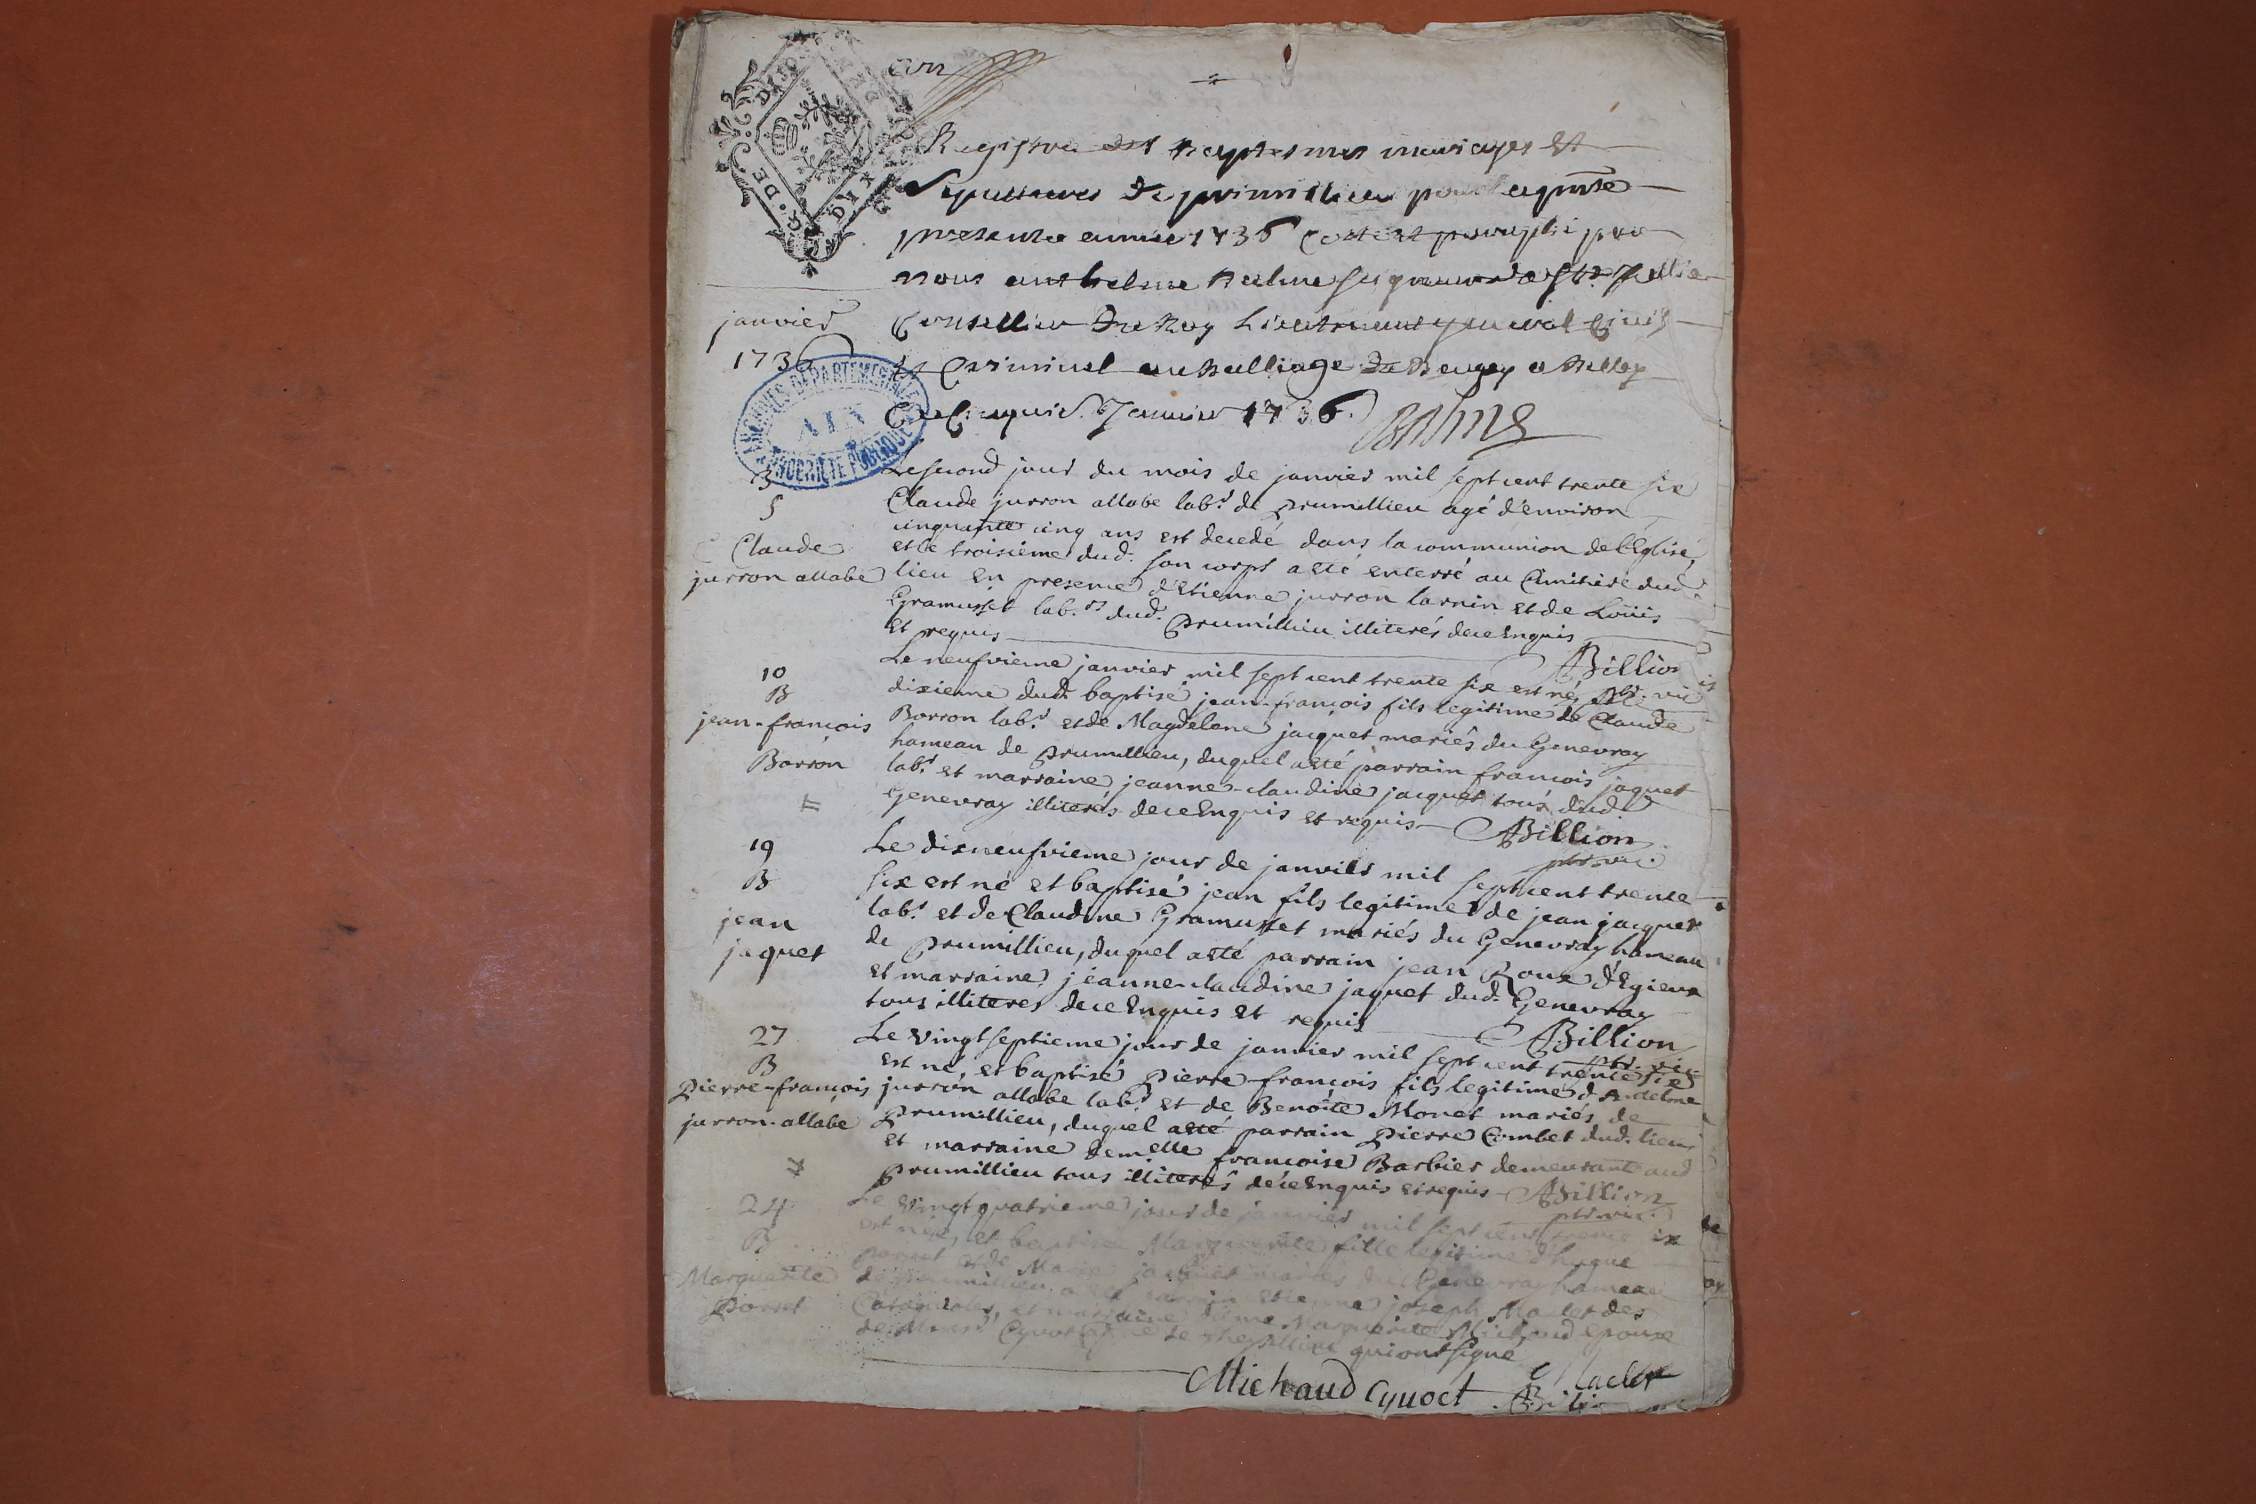 Registre des baptesmes mariages et
Sepultures de prumillieu pour
presente année 1736 Cotté et paraphé par
nous anthelme Balme seigneur de Ste Jullie
Conseiller du Roy Lieutenant general Civil
et Criminel au Balliage du Beugey a Belley
Ce Janvier 1736. Balme
janvier
1736
ARCHIVES DÉPARTEMENTALES
AIN
PROPRIÉTÉ PUBLIQUE
3
S
Claude
jurron allabe
Le second jour du mois de janvier mil sept cent trente six
Claude jurron allabe lab.r de Prumillieu agé d'environ
cinquante cinq ans est decedé dans la communion de l'Eglise,
et le troisieme dud. son corps a eté enterré au Cimitiere dud.
lieu en presence d'Etienne jurron larnin et de Loüis
Gramusset lab.rs dud. Prumillieu illiterés de ce Enquis
et requis Billion
ptr. vic.
10
B
jean-françois
Borron
Le neufvieme janvier mil sept cent trente six est né, et le
dixieme dud. baptisé jean-françois fils legitime de Claude
Borron lab.r et de Magdelene jacquet mariés du Genevray
hameau de Prumillieu, duquel a eté parrain françois jaquet
lab.r et marraine jeanne-claudine jacquet tous dud.
Genevray illiterés de ce Enquis et requis Billion
ptr. vic.
19
B
jean
jaquet
Le dixneufvieme jour de janvier mil sept cent trente
six est né et baptisé jean fils legitime de jean jacquet
lab.r et de Claudine Gramusset mariés du Genevray hameau
de Prumillieu, duquel a eté parrain jean Roux d'Egieux
et marraine jeanne-claudine jaquet dud. Genevray
tous illiteres de ce Enquis et requis Billion
ptr. vic.
27
B
Pierre-françois
jurron-allabe
Le vingt septieme jour de janvier mil sept cent trente six
est né, et baptisé Pierre-françois fils legitime d'Andelme
jurron allabe lab.r et de Benoîte Monet mariés de
Prumillieu, duquel a eté parrain Pierre Combet dud. lieu
et marraine demelle françoise Barbier demeurante aud.
Prumillieu tous illiterés de ce Enquis et requis Billion
ptr. vic.
24
B
Marguerite
Porret
Le vingt quatrieme jour de janvier mil sept cent trente six
est née, et baptisée Marguerite fille legitime d'hugue
Porret et de Marie jacquet mariés du Genevray hameau
de Prumillieu a eté parrain Etienne joseph Maclet des
et marraine dame Marguerite Michaud epouse
de qui ont signé
Michaud Cyvoct Maclet
Billion